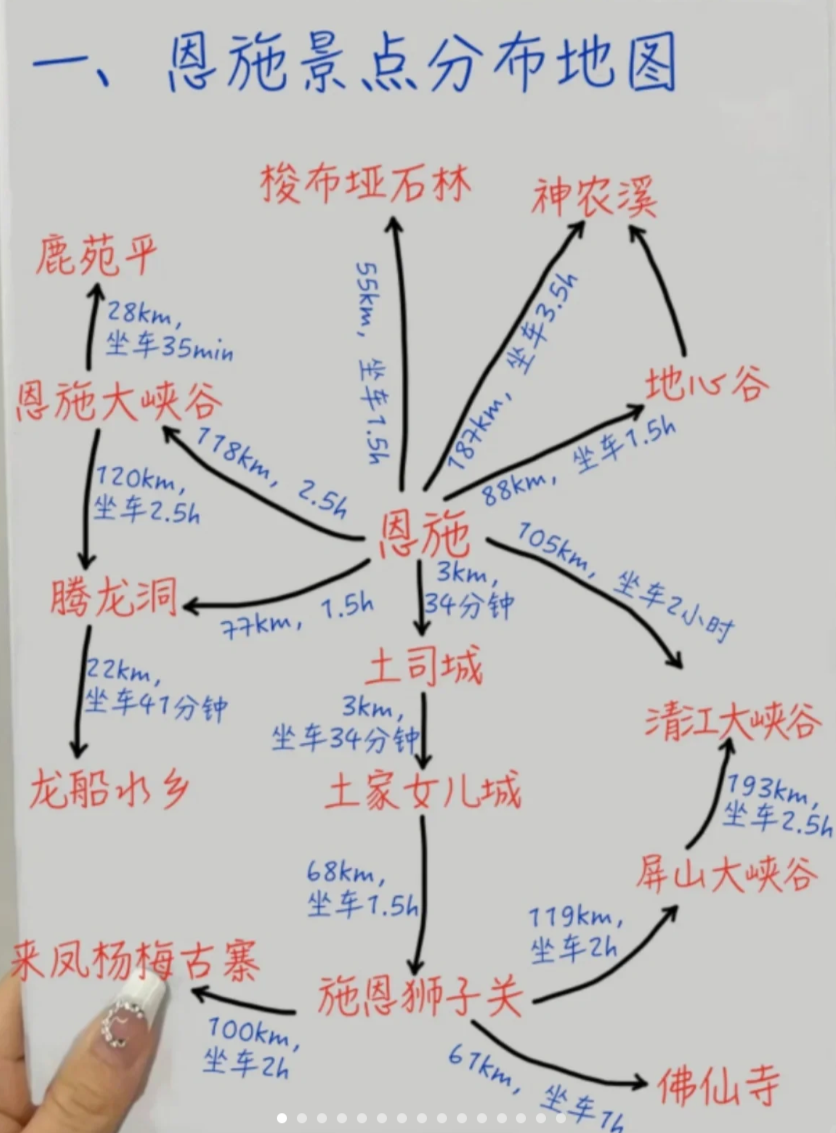 一、恩施景点分布地图
梭布垭石林
神农溪
鹿苑平
28km,
坐车35min
55km, 坐车1.5h
187km, 坐车3.5h
地心谷
恩施大峡谷
118km, 2.5h
88km, 坐车1.5h
120km,
坐车2.5h
恩施
105km, 坐车2小时
腾龙洞
77km, 1.5h
3km,
34分钟
土司城
22km,
坐车41分钟
3km,
坐车34分钟
清江大峡谷
龙船水乡
土家女儿城
193km,
坐车2.5h
68km,
坐车1.5h
屏山大峡谷
119km,
坐车2h
来凤杨梅古寨
施恩狮子关
100km,
坐车2h
61km, 坐车1h
佛仙寺